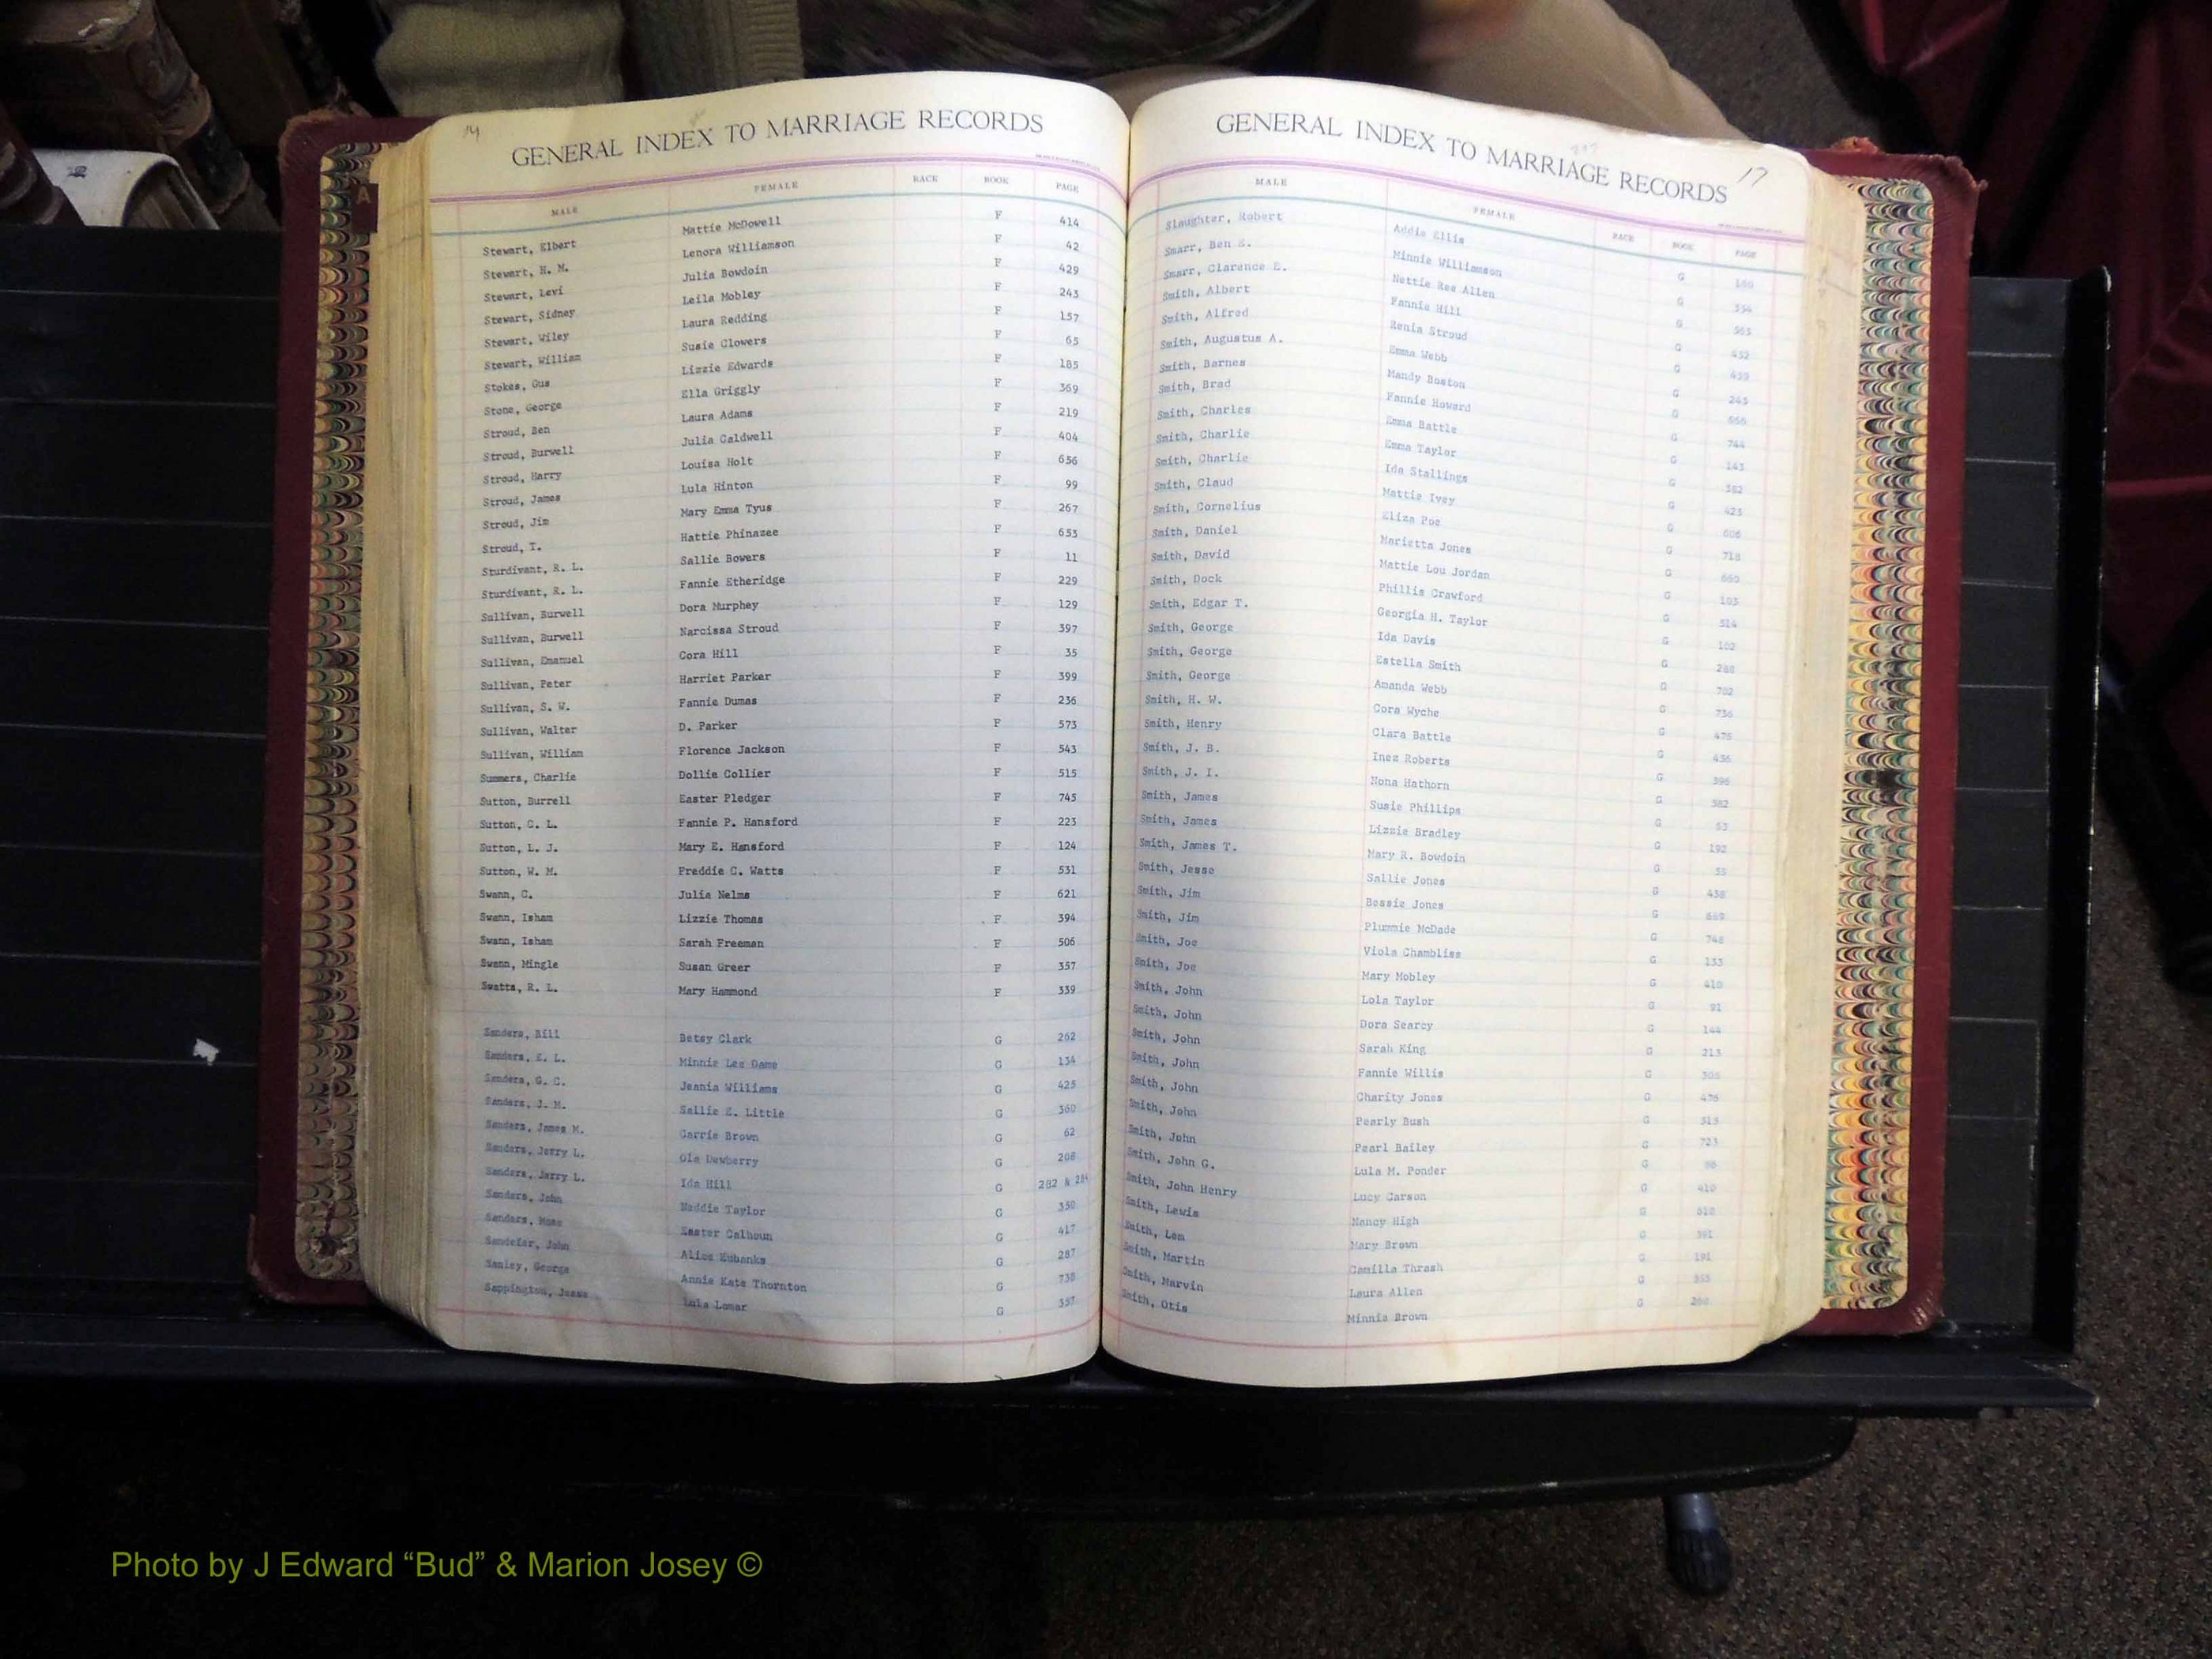 14
GENERAL INDEX TO MARRIAGE RECORDS
MALE FEMALE RACE BOOK PAGE
Stewart, Elbert Mattie McDowell F 414
Stewart, H. M. Lenora Williamson F 42
Stewart, Levi Julia Bowdoin F 429
Stewart, Sidney Leila Mobley F 243
Stewart, Wiley Laura Redding F 157
Stewart, William Susie Clowers F 65
Stokes, Gus Lizzie Edwards F 185
Stone, George Ella Griggly F 369
Stroud, Ben Laura Adams F 219
Stroud, Burwell Julia Caldwell F 404
Stroud, Harry Louisa Holt F 656
Stroud, James Lula Hinton F 99
Stroud, Jim Mary Emma Tyus F 267
Stroud, T. Hattie Phinazee F 653
Sturdivant, R. L. Sallie Bowers F 11
Sturdivant, R. L. Fannie Etheridge F 229
Sullivan, Burwell Dora Murphey F 129
Sullivan, Burwell Narcissa Stroud F 397
Sullivan, Emanuel Cora Hill F 35
Sullivan, Peter Harriet Parker F 399
Sullivan, S. W. Fannie Dumas F 236
Sullivan, Walter D. Parker F 573
Sullivan, William Florence Jackson F 543
Summers, Charlie Dollie Collier F 515
Sutton, Burrell Easter Pledger F 745
Sutton, C. L. Fannie P. Hansford F 223
Sutton, L. J. Mary E. Hansford F 124
Sutton, W. M. Freddie C. Watts F 531
Swann, C. Julia Nelms F 621
Swann, Isham Lizzie Thomas F 394
Swann, Isham Sarah Freeman F 506
Swann, Mingle Susan Greer F 357
Swatts, R. L. Mary Hammond F 339
Sanders, Bill Betsy Clark G 262
Sanders, E. L. Minnie Lee Dame G 134
Sanders, G. C. Jeania Williams G 425
Sanders, J. M. Sallie E. Little G 360
Sanders, James M. Carrie Brown G 62
Sanders, Jerry L. Ola Dewberry G 208
Sanders, Jerry L. Ida Hill G 282 & 284
Sanders, John Naddie Taylor G 350
Sanders, Mose Easter Calhoun G 417
Sandefer, John Alice Eubanks G 287
Sanley, George Annie Kate Thornton G 738
Sappington, Jesse Lula Lomar G 557
17
GENERAL INDEX TO MARRIAGE RECORDS
MALE FEMALE RACE BOOK PAGE
Slaughter, Robert Addie Ellis G 160
Smarr, Ben E. Minnie Williamson G 354
Smarr, Clarence E. Nettie Rea Allen G 563
Smith, Albert Fannie Hill G 432
Smith, Alfred Zenia Stroud G 439
Smith, Augustus A. Emma Webb G 243
Smith, Barnes Mandy Boston G 656
Smith, Brad Fannie Howard G 744
Smith, Charles Emma Battle G 143
Smith, Charlie Emma Taylor G 382
Smith, Charlie Ida Stallings G 423
Smith, Claud Mattie Ivey G 606
Smith, Cornelius Eliza Poe G 718
Smith, Daniel Marietta Jones G 665
Smith, David Mattie Lou Jordan G 103
Smith, Dock Phillis Crawford G 314
Smith, Edgar T. Georgia H. Taylor G 102
Smith, George Ida Davis G 288
Smith, George Estella Smith G 782
Smith, George Amanda Webb G 736
Smith, H. W. Cora Wyche G 475
Smith, Henry Clara Battle G 436
Smith, J. B. Inez Roberts G 396
Smith, J. I. Nona Hathorn G 382
Smith, James Susie Phillips G 53
Smith, James Lizzie Bradley G 192
Smith, James T. Mary R. Bowdoin G 55
Smith, Jesse Sallie Jones G 438
Smith, Jim Bessie Jones G 669
Smith, Jim Plummie McDade G 748
Smith, Joe Viola Chambliss G 133
Smith, Joe Mary Mobley G 410
Smith, John Lola Taylor G 91
Smith, John Dora Searcy G 144
Smith, John Sarah King G 213
Smith, John Fannie Willis G 305
Smith, John Charity Jones G 476
Smith, John Pearly Bush G 513
Smith, John Pearl Bailey G 723
Smith, John G. Lula M. Ponder G 86
Smith, John Henry Lucy Carson G 410
Smith, Lewis Nancy High G 610
Smith, Lem Mary Brown G 391
Smith, Martin Camilla Thrash G 191
Smith, Marvin Laura Allen G 355
Smith, Otis Minnie Brown G 260
A
Photo by J Edward “Bud” & Marion Josey ©